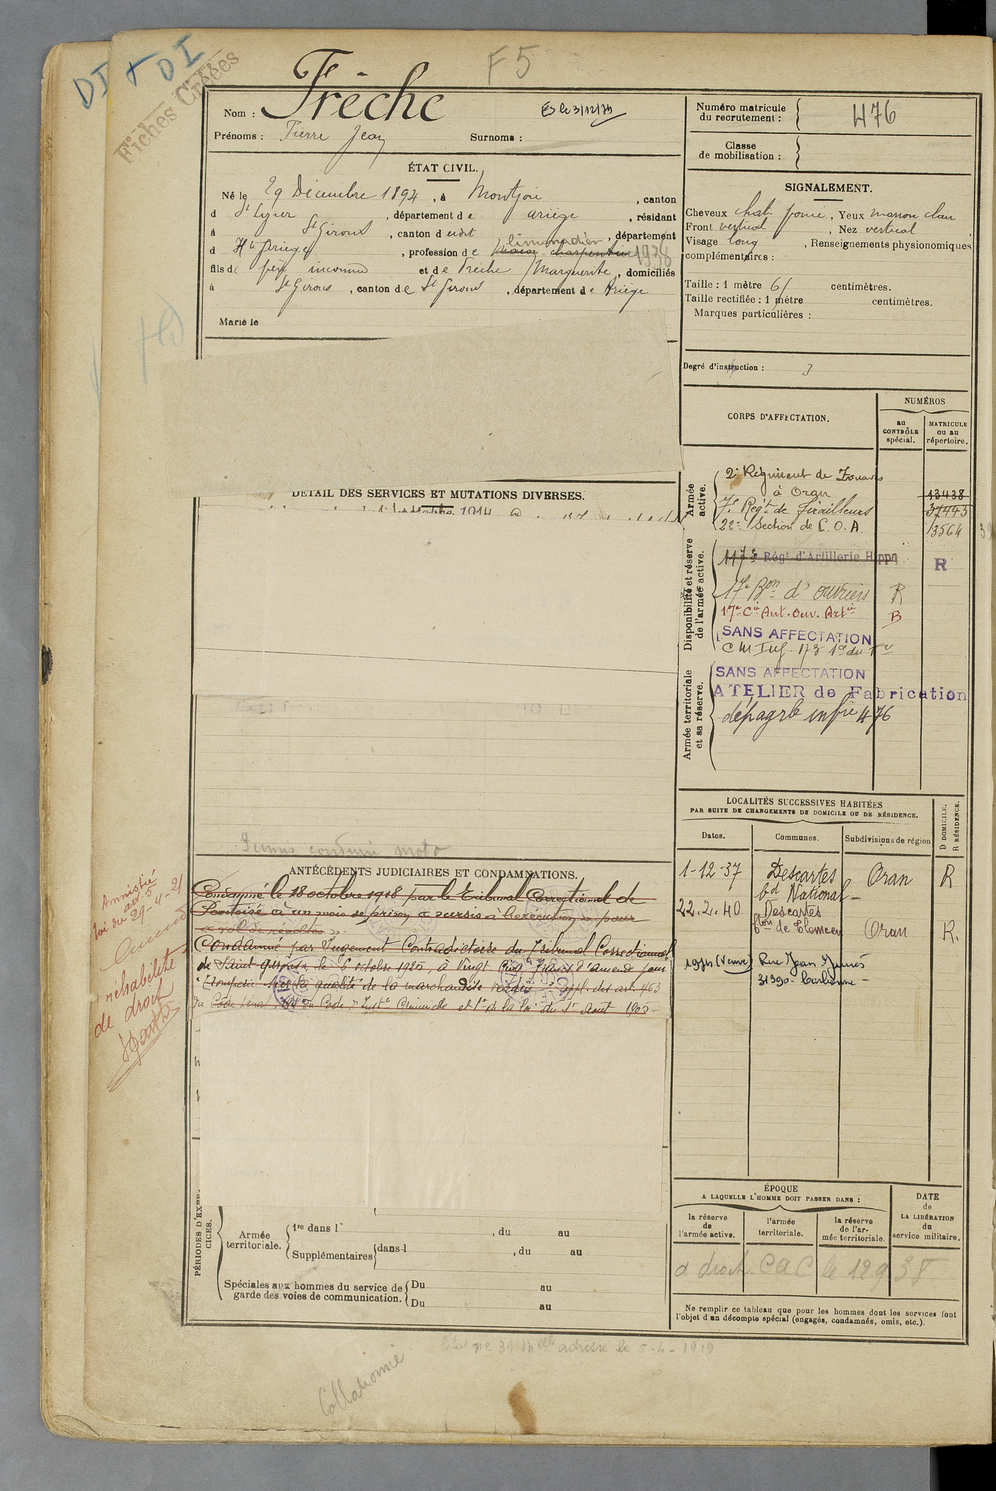 DI + DI
Fiches Créées
F5
Nom : Frèche
Es le 3/12/73
Prénoms : Pierre Jean Surnoms :
ÉTAT CIVIL.
Né le 29 Décembre 1894, à Montjoie, canton
d St Lizier, département de Ariège, résidant
à St Girons, canton d eudit, département
d Hte Ariège, profession de limonadier 1938
fils de père inconnu et de Frèche Marguerite, domiciliés
à St Girons, canton de St Girons, département de Ariège
Marié le
DÉTAIL DES SERVICES ET MUTATIONS DIVERSES.
Permis conduire moto
ANTÉCÉDENTS JUDICIAIRES ET CONDAMNATIONS.
Condamné le 18 octobre 1918 par le Tribunal Correctionnel de
Pontoise à un mois de prison à sursis à l'exécution pour
« vol de récoltes ».
Condamné par Jugement Contradictoire du Tribunal Correctionnel
de Saint Girons, le 6 octobre 1925, à Vingt Cinq Francs d'amende pour
Tromperie sur la qualité de la marchandise vendue appl. des art. 463
du Code pénal du Code d'Inst. Criminelle et 1er de la loi du 1er Aout 1905
Amnistié
loi du 29-4-21
réhabilité
de droit
PÉRIODES D'EXERCICES.
Armée territoriale. 1re dans l , du au
Supplémentaires dans l , du au
Spéciales aux hommes du service de garde des voies de communication. Du au
Du au
Numéro matricule du recrutement : 476
Classe de mobilisation :
SIGNALEMENT.
Cheveux chat. foncé, Yeux marron clair
Front vertical, Nez vertical
Visage long, Renseignements physionomiques
complémentaires :
Taille : 1 mètre 61 centimètres.
Taille rectifiée : 1 mètre centimètres.
Marques particulières :
Degré d'instruction : 3
CORPS D'AFFECTATION.
NUMÉROS
au CONTRÔLE spécial.
MATRICULE ou au répertoire.
Armée active.
2e Régiment de Zouaves
à Oran 13438
7e Régt de Tirailleurs 37443
22e Section de C.O.A. 13564
Disponibilité et réserve de l'armée active.
117e Régt d'Artillerie Hippo R
17e Bon d'ouvriers R
17e Cie Aut. Ouv. Artie B
SANS AFFECTATION
Armée territoriale et sa réserve.
SANS AFFECTATION
ATELIER de Fabrication
LOCALITÉS SUCCESSIVES HABITÉES
PAR SUITE DE CHANGEMENTS DE DOMICILE OU DE RÉSIDENCE.
Dates. Communes. Subdivisions de région D DOMICILE. R RÉSIDENCE.
1-12-37 Descartes Oran R
bd National
22.2.40 Descartes Oran R.
Rue Jean Jaurès
31390 Carbonne
ÉPOQUE
A LAQUELLE L'HOMME DOIT PASSER DANS :
DATE de LA LIBÉRATION du service militaire.
la réserve de l'armée active.
l'armée territoriale.
la réserve de l'armée territoriale.
Ne remplir ce tableau que pour les hommes dont les services font
l'objet d'un décompte spécial (engagés, condamnés, omis, etc.).
Collationné